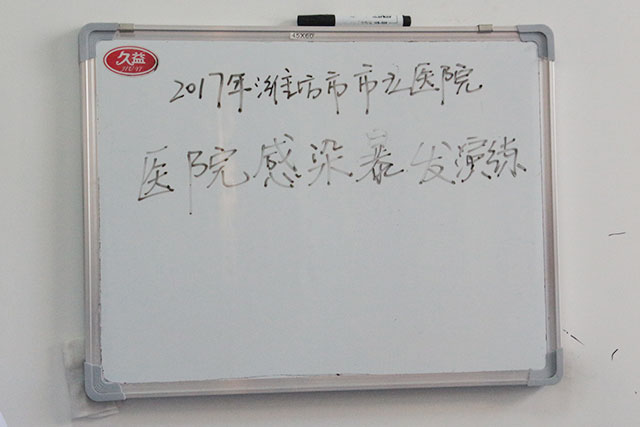 45X60
久益
2017年潍坊市市立医院
医院感染暴发演练